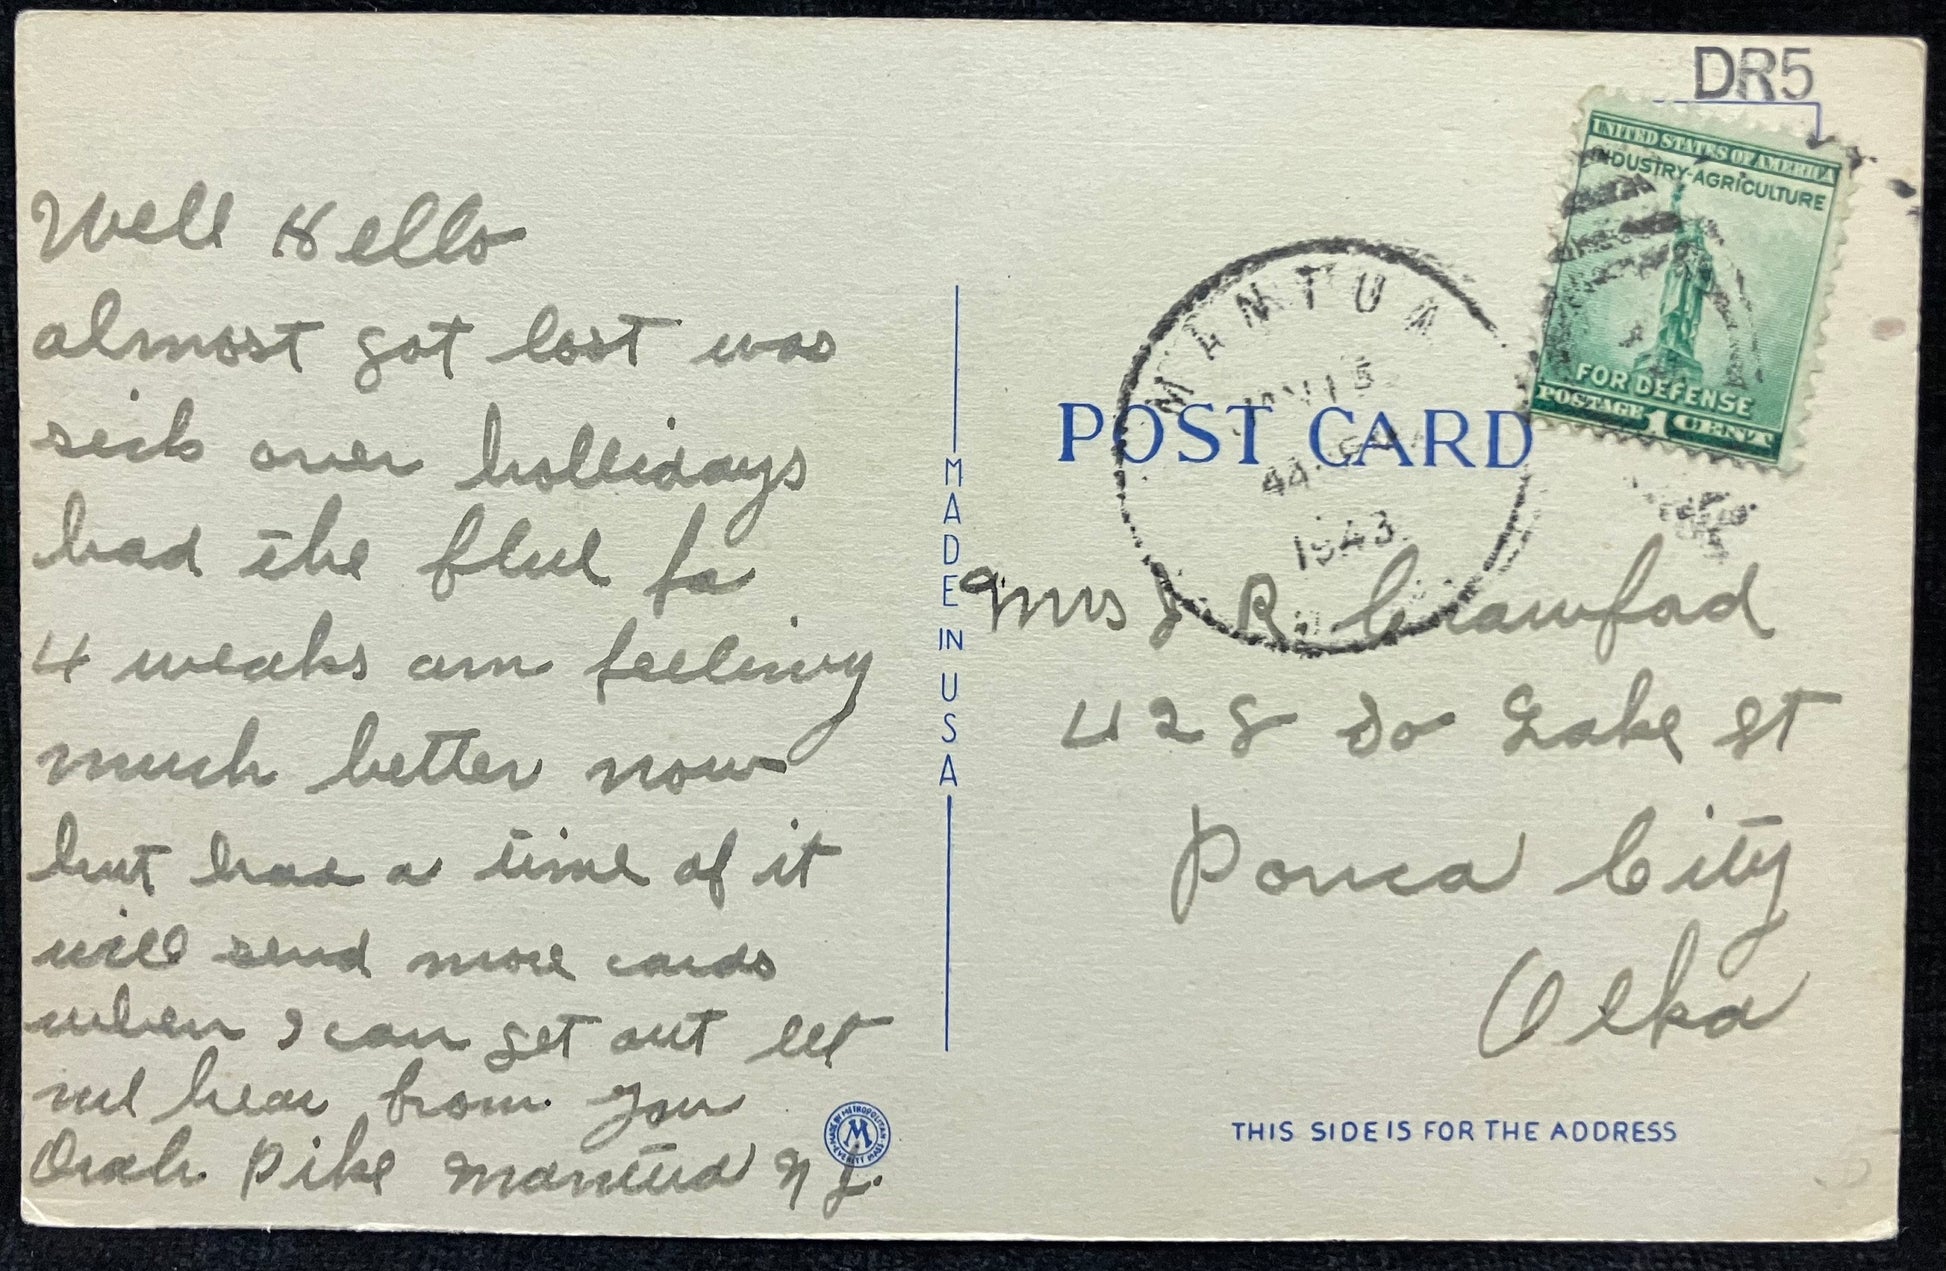 Well Hello
almost got lost was
sick over hollidays
had the flue fo
4 weaks am feeling
much better now
but had a time of it
will send more cards
when I can get out let
me hear from you
Orah Pike Mantua N J.
MADE IN USA
MADE BY METROPOLITAN
M
EVERETT MASS
DR5
UNITED STATES OF AMERICA
INDUSTRY-AGRICULTURE
FOR DEFENSE
POSTAGE 1 CENT
MANTUA
JAN 15
1943
POST CARD
Mrs J R. Crawfod
428 So Lake St
Ponca City
Olka
THIS SIDE IS FOR THE ADDRESS